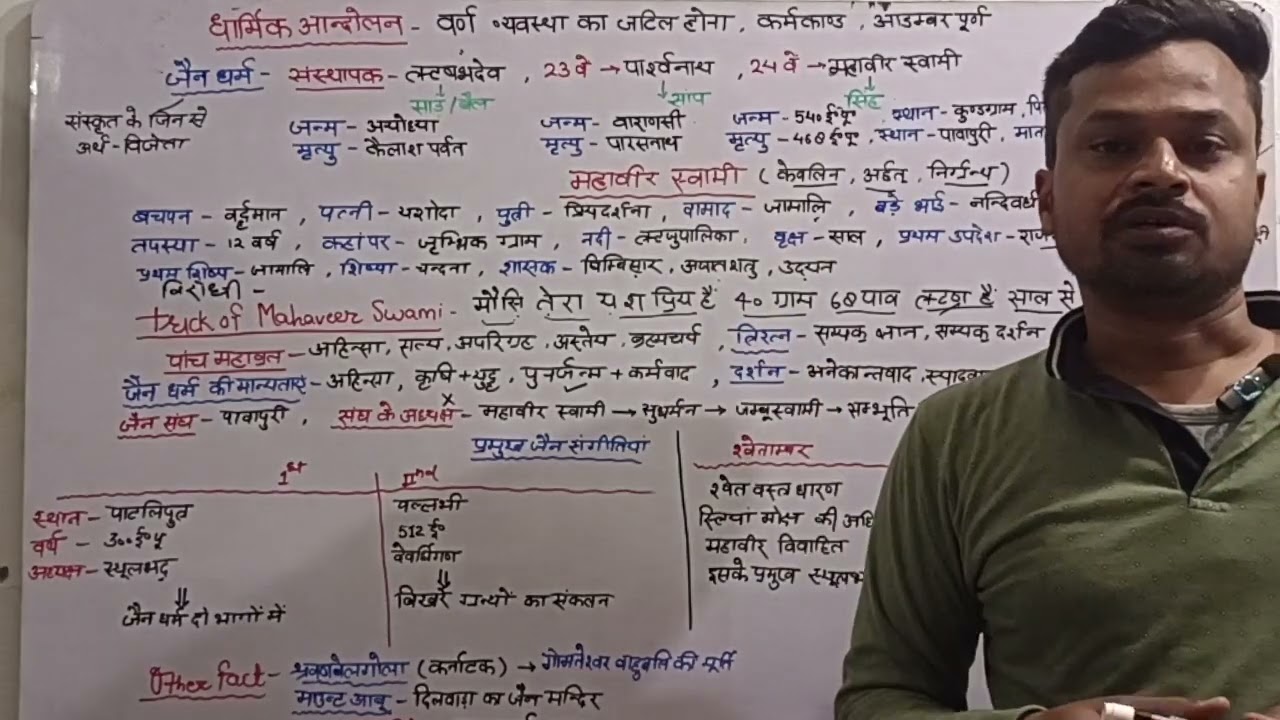 धार्मिक आन्दोलन - वर्ण व्यवस्था का जटिल होना, कर्मकाण्ड, आडम्बर पूर्ण
जैन धर्म - संस्थापक - ऋषभदेव, 23वे → पार्श्वनाथ, 24वें → महावीर स्वामी
साड/बैल सांप सिंह
संस्कृत के जिन से
अर्थ - विजेता
जन्म - अयोध्या जन्म - वाराणसी जन्म - 540 ई०पू०, स्थान - कुण्डग्राम,
मृत्यु - कैलाश पर्वत मृत्यु - पारसनाथ मृत्यु - 468 ई०पू०, स्थान - पावापुरी,
महावीर स्वामी (केवलिन, अर्हत, निर्ग्रन्थ)
बचपन - वर्द्दमान, पत्नी - यशोदा, पुत्री - प्रियदर्शना, दामाद - जामालि, बड़े भाई - नन्दिवर्ध
तपस्या - 12 वर्ष, कहां पर - जृम्भिक ग्राम, नदी - ऋजुपालिका, वृक्ष - साल, प्रथम उपदेश - राज
प्रथम शिष्य - जामालि, शिष्या - चन्दना, शासक - बिम्बिसार, अजातशत्रु, उदयन
विरोधी -
trick of Mahaveer Swami - मौसि तेरा यश प्रिय है 40 ग्राम 68 पाव ऋजु है साल से
पांच महाव्रत - अहिन्सा, सत्य, अपरिग्रह, अस्तेय, ब्रह्मचर्य, त्रिरत्न - सम्यक ज्ञान, सम्यक दर्शन
जैन धर्म की मान्यताएं - अहिन्सा, कृषि + युद्ध, पुनर्जन्म + कर्मवाद, दर्शन - अनेकान्तवाद, स्यादवा
x
जैन संघ - पावापुरी, संघ के अध्यक्ष - महावीर स्वामी → सुधर्मन → जम्बूस्वामी → सम्भूति
प्रमुख जैन संगीतियां
1st IInd
स्थान - पाटलिपुत्र वल्लभी
वर्ष - 300 ई०पू 512 ई०
अध्यक्ष - स्थूलभद्र देवर्धिगण
जैन धर्म दो भागों में बिखरे ग्रन्थों का संकलन
श्वेताम्बर
श्वेत वस्त्र धारण
स्त्रियां मोक्ष की अधि
महावीर विवाहित
इसके प्रमुख स्थूलभ
Other fact - श्रवणबेलगोला (कर्नाटक) → गोमतेश्वर बाहुबलि की मूर्ति
माउन्ट आबू - दिलवाड़ा का जैन मन्दिर